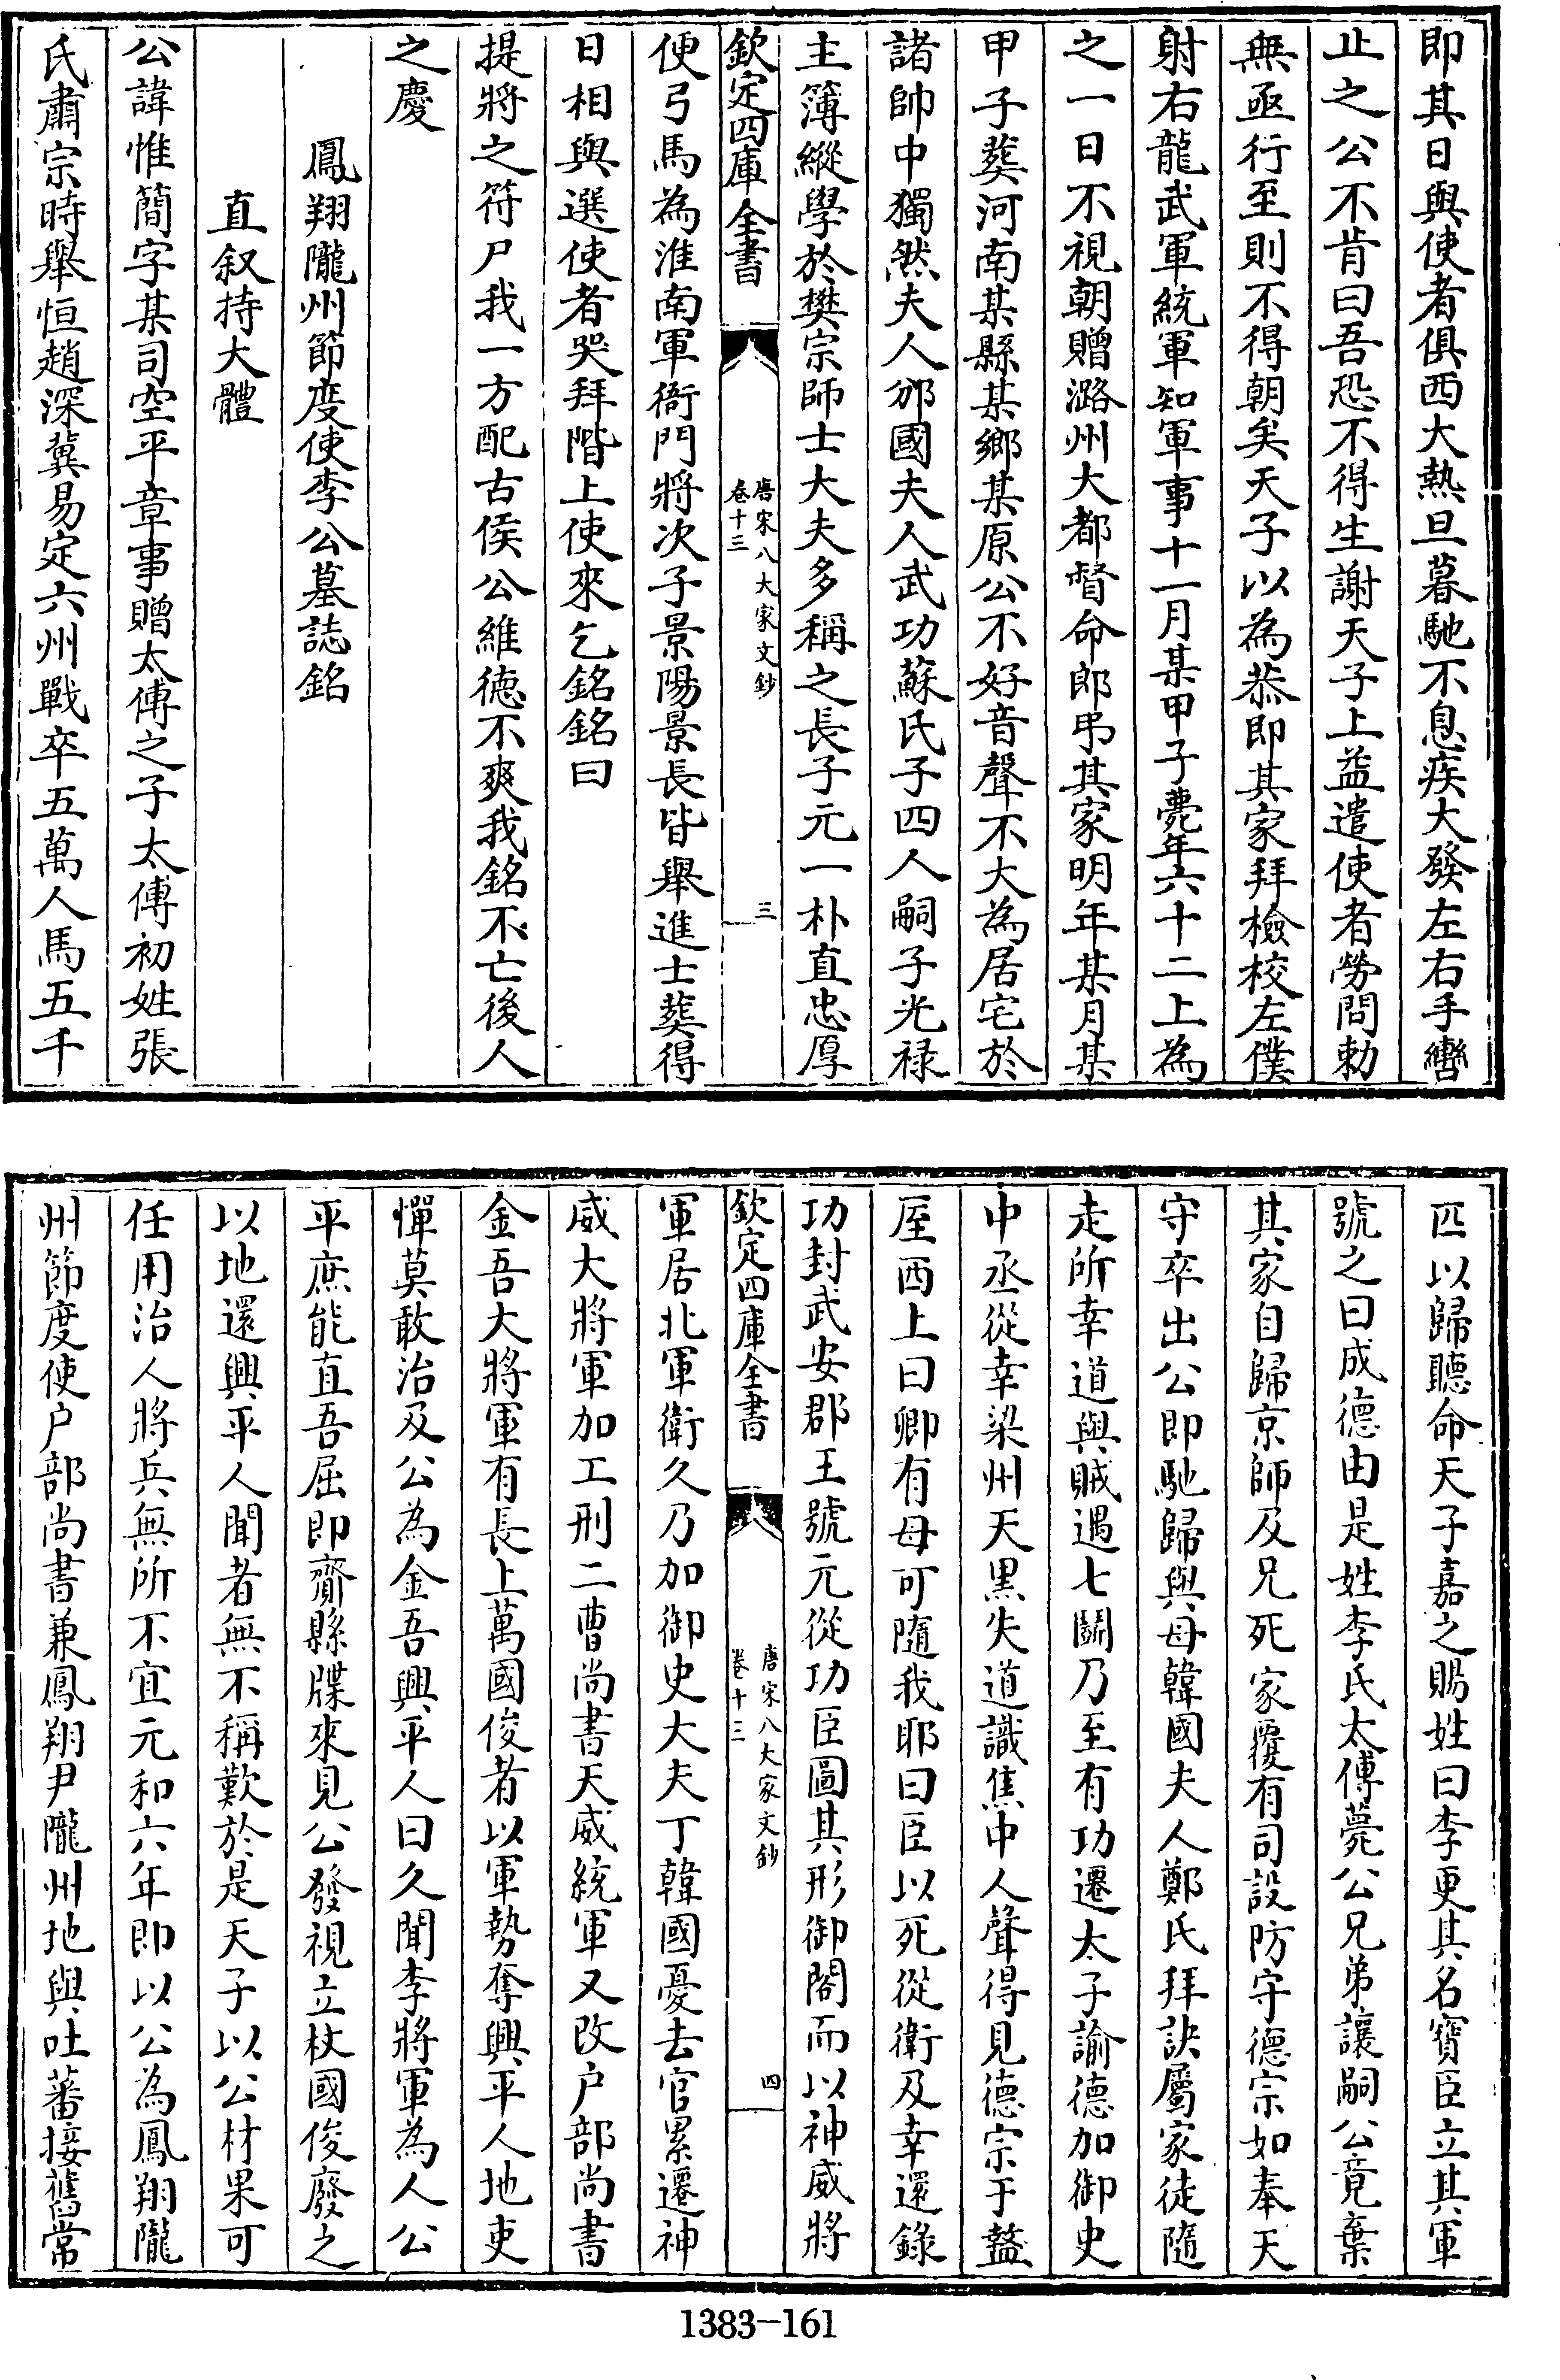 即其日與使者俱西大熱旦暮馳不息疾大發左右手轡
止之公不肯曰吾恐不得生謝天子上益遣使者勞問勅
無亟行至則不得朝矣天子以為恭即其家拜檢校左僕
射右龍武軍統軍知軍事十一月某甲子薨年六十二上為
之一日不視朝贈潞州大都督命郎弔其家明年某月某
甲子葬河南某縣某鄉某原公不好音聲不大為居宅於
諸帥中獨然夫人邠國夫人武功蘇氏子四人嗣子光禄
主簿縱學於樊宗師士大夫多稱之長子元一朴直忠厚
欽定四庫全書
唐宋八大家文鈔
卷十三
三
便弓馬為淮南軍衙門將次子景陽景長皆舉進士葬得
日相與選使者哭拜階上使來乞銘銘曰
提將之符尸我一方配古侯公維德不爽我銘不亡後人
之慶
鳳翔隴州節度使李公墓誌銘
直叙持大體
公諱惟簡字某司空平章事贈太傅之子太傅初姓張
氏肅宗時舉恒趙深冀易定六州戰卒五萬人馬五千
匹以歸聽命天子嘉之賜姓曰李更其名寶臣立其軍
號之曰成德由是姓李氏太傅薨公兄弟讓嗣公竟棄
其家自歸京師及兄死家覆有司設防守德宗如奉天
守卒出公即馳歸與母韓國夫人鄭氏拜訣屬家徒隨
走所幸道與賊遇七鬭乃至有功遷太子諭德加御史
中丞從幸梁州天黒失道識焦中人聲得見德宗于盩
厔西上曰卿有母可隨我耶曰臣以死從衛及幸還錄
功封武安郡王號元從功臣圖其形御閣而以神威將
欽定四庫全書
唐宋八大家文鈔
卷十三
四
軍居北軍衛久乃加御史大夫丁韓國憂去官累遷神
威大將軍加工刑二曹尚書天威統軍又改户部尚書
金吾大將軍有長上萬國俊者以軍勢奪興平人地吏
憚莫敢治及公為金吾興平人曰久聞李將軍為人公
平庶能直吾屈即齎縣牒來見公發視立杖國俊廢之
以地還興平人聞者無不稱歎於是天子以公材果可
任用治人將兵無所不宜元和六年即以公為鳳翔隴
州節度使户部尚書兼鳳翔尹隴州地與吐蕃接舊常
1383-161